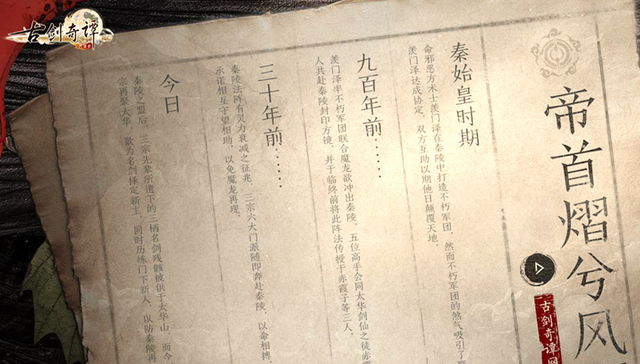 古剑奇谭
帝首熠兮风
古剑奇谭网
秦始皇时期
命邪恶方术士羡门泽在秦陵中打造不朽军团，然而不朽军团的煞气吸引了
羡门泽达成协定，双方互助以期他日颠覆天地。
九百年前……
羡门泽率不朽军团联合魔龙欲冲出秦陵，五位高手会同太华剑仙之徒赤
人共赴秦陵封印方镜，并于临终前将此阵法传授于赤霞子等三人。
三十年前……
秦陵法阵有灵力衰减之征兆，三宗六大门派随即奔赴秦陵，以命相搏
承诺相互守望相助，以免魔龙再现。
今日
秦陵之盟后，三宗先辈所遗下的三柄名剑残骸被供于太华山，而今
宗再聚太华，欲为名剑择定新主，同时历练门下新人，以防秦陵再